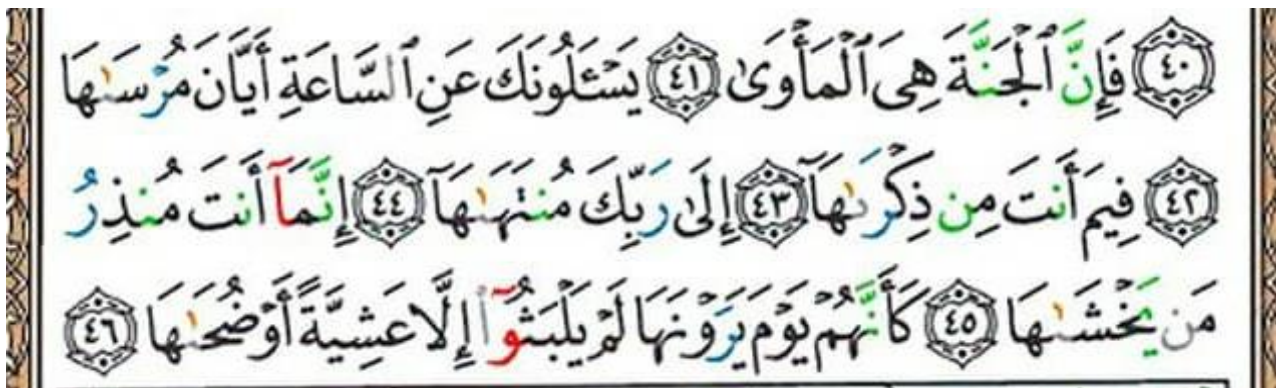 ﴿٤٠﴾ فَإِنَّ ٱلْجَنَّةَ هِىَ ٱلْمَأْوَىٰ ﴿٤١﴾ يَسْـَٔلُونَكَ عَنِ ٱلسَّاعَةِ أَيَّانَ مُرْسَىٰهَا
﴿٤٢﴾ فِيمَ أَنتَ مِن ذِكْرَىٰهَآ ﴿٤٣﴾ إِلَىٰ رَبِّكَ مُنتَهَىٰهَآ ﴿٤٤﴾ إِنَّمَآ أَنتَ مُنذِرُ
مَن يَخْشَىٰهَا ﴿٤٥﴾ كَأَنَّهُمْ يَوْمَ يَرَوْنَهَا لَمْ يَلْبَثُوٓا۟ إِلَّا عَشِيَّةً أَوْ ضُحَىٰهَا ﴿٤٦﴾